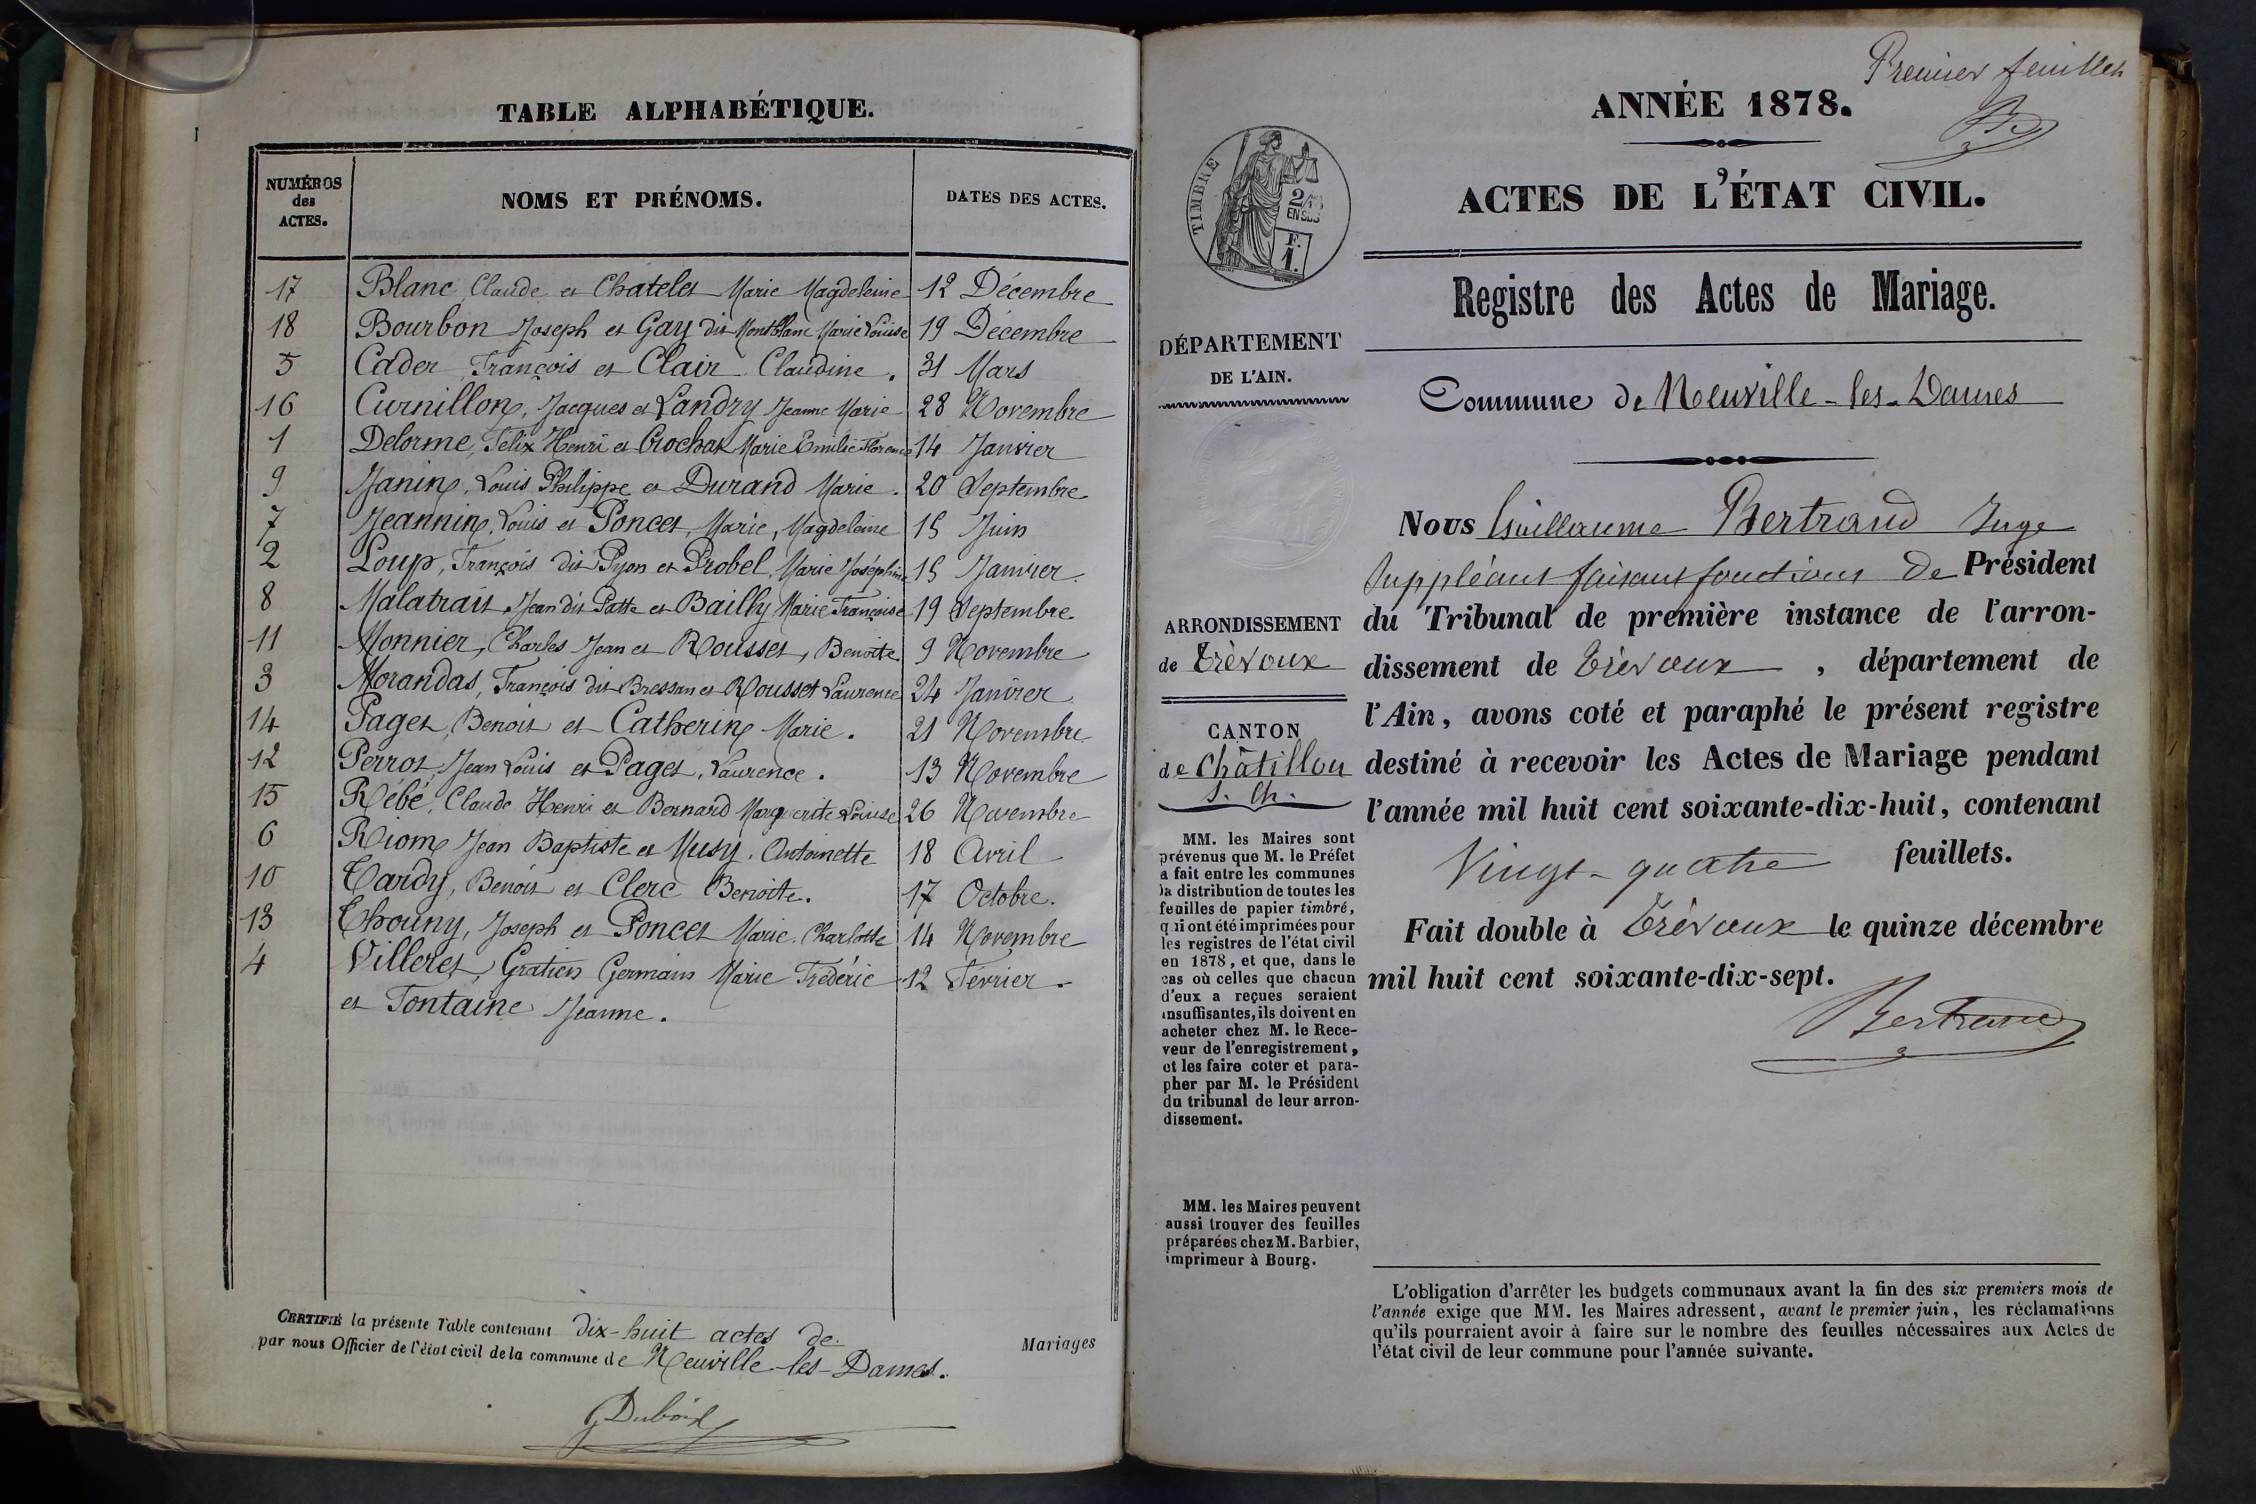 TABLE ALPHABÉTIQUE.
NUMÉROS des ACTES. NOMS ET PRÉNOMS. DATES DES ACTES.
17 Blanc Claude et Chatelet Marie Magdeleine 12 Décembre
18 Bourbon Joseph et Gay dit Montblanc Marie Louise 19 Décembre
5 Cader François et Clair Claudine. 31 Mars
16 Curnillon, Jacques et Landry Jeanne Marie 28 Novembre
1 Delorme, Felix Henri et Crochat Marie Emilie Florence 14 Janvier
9 Janin, Louis Philippe et Durand Marie. 20 Septembre
7 Jeannin, Louis et Poncet, Marie, Magdeleine 15 Juin
2 Loup, François dit Pyon et Probel, Marie Joséphine 15 Janvier.
8 Malatrait, Jean dit Patte et Bailly Marie Françoise 19 Septembre.
11 Monnier, Charles Jean et Rousset, Benoîte 9 Novembre
3 Morandas, François dit Bressan et Rousset Laurence 24 Janvier
14 Paget, Benoit et Catherin Marie. 21 Novembre
12 Perrot, Jean Louis et Paget, Laurence. 13 Novembre
15 Rébé, Claude Henri et Bernard Marguerite Louise 26 Novembre
6 Riom, Jean Baptiste et Musy. Antoinette 18 Avril
10 Tardy, Benoit et Clerc Benoîte. 17 Octobre.
13 Thouny, Joseph et Poncet Marie. Charlotte 14 Novembre
4 Villeret, Gratien Germain Marie Frédéric 12 Février.
et Fontaine Jeanne.
CERTIFIÉ la présente Table contenant dix-huit actes de Mariages
par nous Officier de l'état civil de la commune de Neuville-les-Dames.
Dubois
Premier feuillet
ANNÉE 1878.
ACTES DE L'ÉTAT CIVIL.
Registre des Actes de Mariage.
Commune de Neuville-les-Dames
TIMBRE
2/10
EN SUS
F.
1.
DÉPARTEMENT
DE L'AIN.
ARRONDISSEMENT
de Trévoux
CANTON
de Châtillon
s. Ch.
MM. les Maires sont
prévenus que M. le Préfet
a fait entre les communes
la distribution de toutes les
feuilles de papier timbré,
qui ont été imprimées pour
les registres de l'état civil
en 1878, et que, dans le
cas où celles que chacun
d'eux a reçues seraient
insuffisantes, ils doivent en
acheter chez M. le Rece-
veur de l'enregistrement,
et les faire coter et para-
pher par M. le Président
du tribunal de leur arron-
dissement.
MM. les Maires peuvent
aussi trouver des feuilles
préparées chez M. Barbier,
imprimeur à Bourg.
Nous Guillaume Bertrand Juge
Suppléant faisant fonctions de Président
du Tribunal de première instance de l'arron-
dissement de Trévoux, département de
l'Ain, avons coté et paraphé le présent registre
destiné à recevoir les Actes de Mariage pendant
l'année mil huit cent soixante-dix-huit, contenant
Vingt-quatre feuillets.
Fait double à Trévoux le quinze décembre
mil huit cent soixante-dix-sept.
Bertrand
L'obligation d'arrêter les budgets communaux avant la fin des six premiers mois de
l'année exige que MM. les Maires adressent, avant le premier juin, les réclamations
qu'ils pourraient avoir à faire sur le nombre des feuilles nécessaires aux Actes de
l'état civil de leur commune pour l'année suivante.